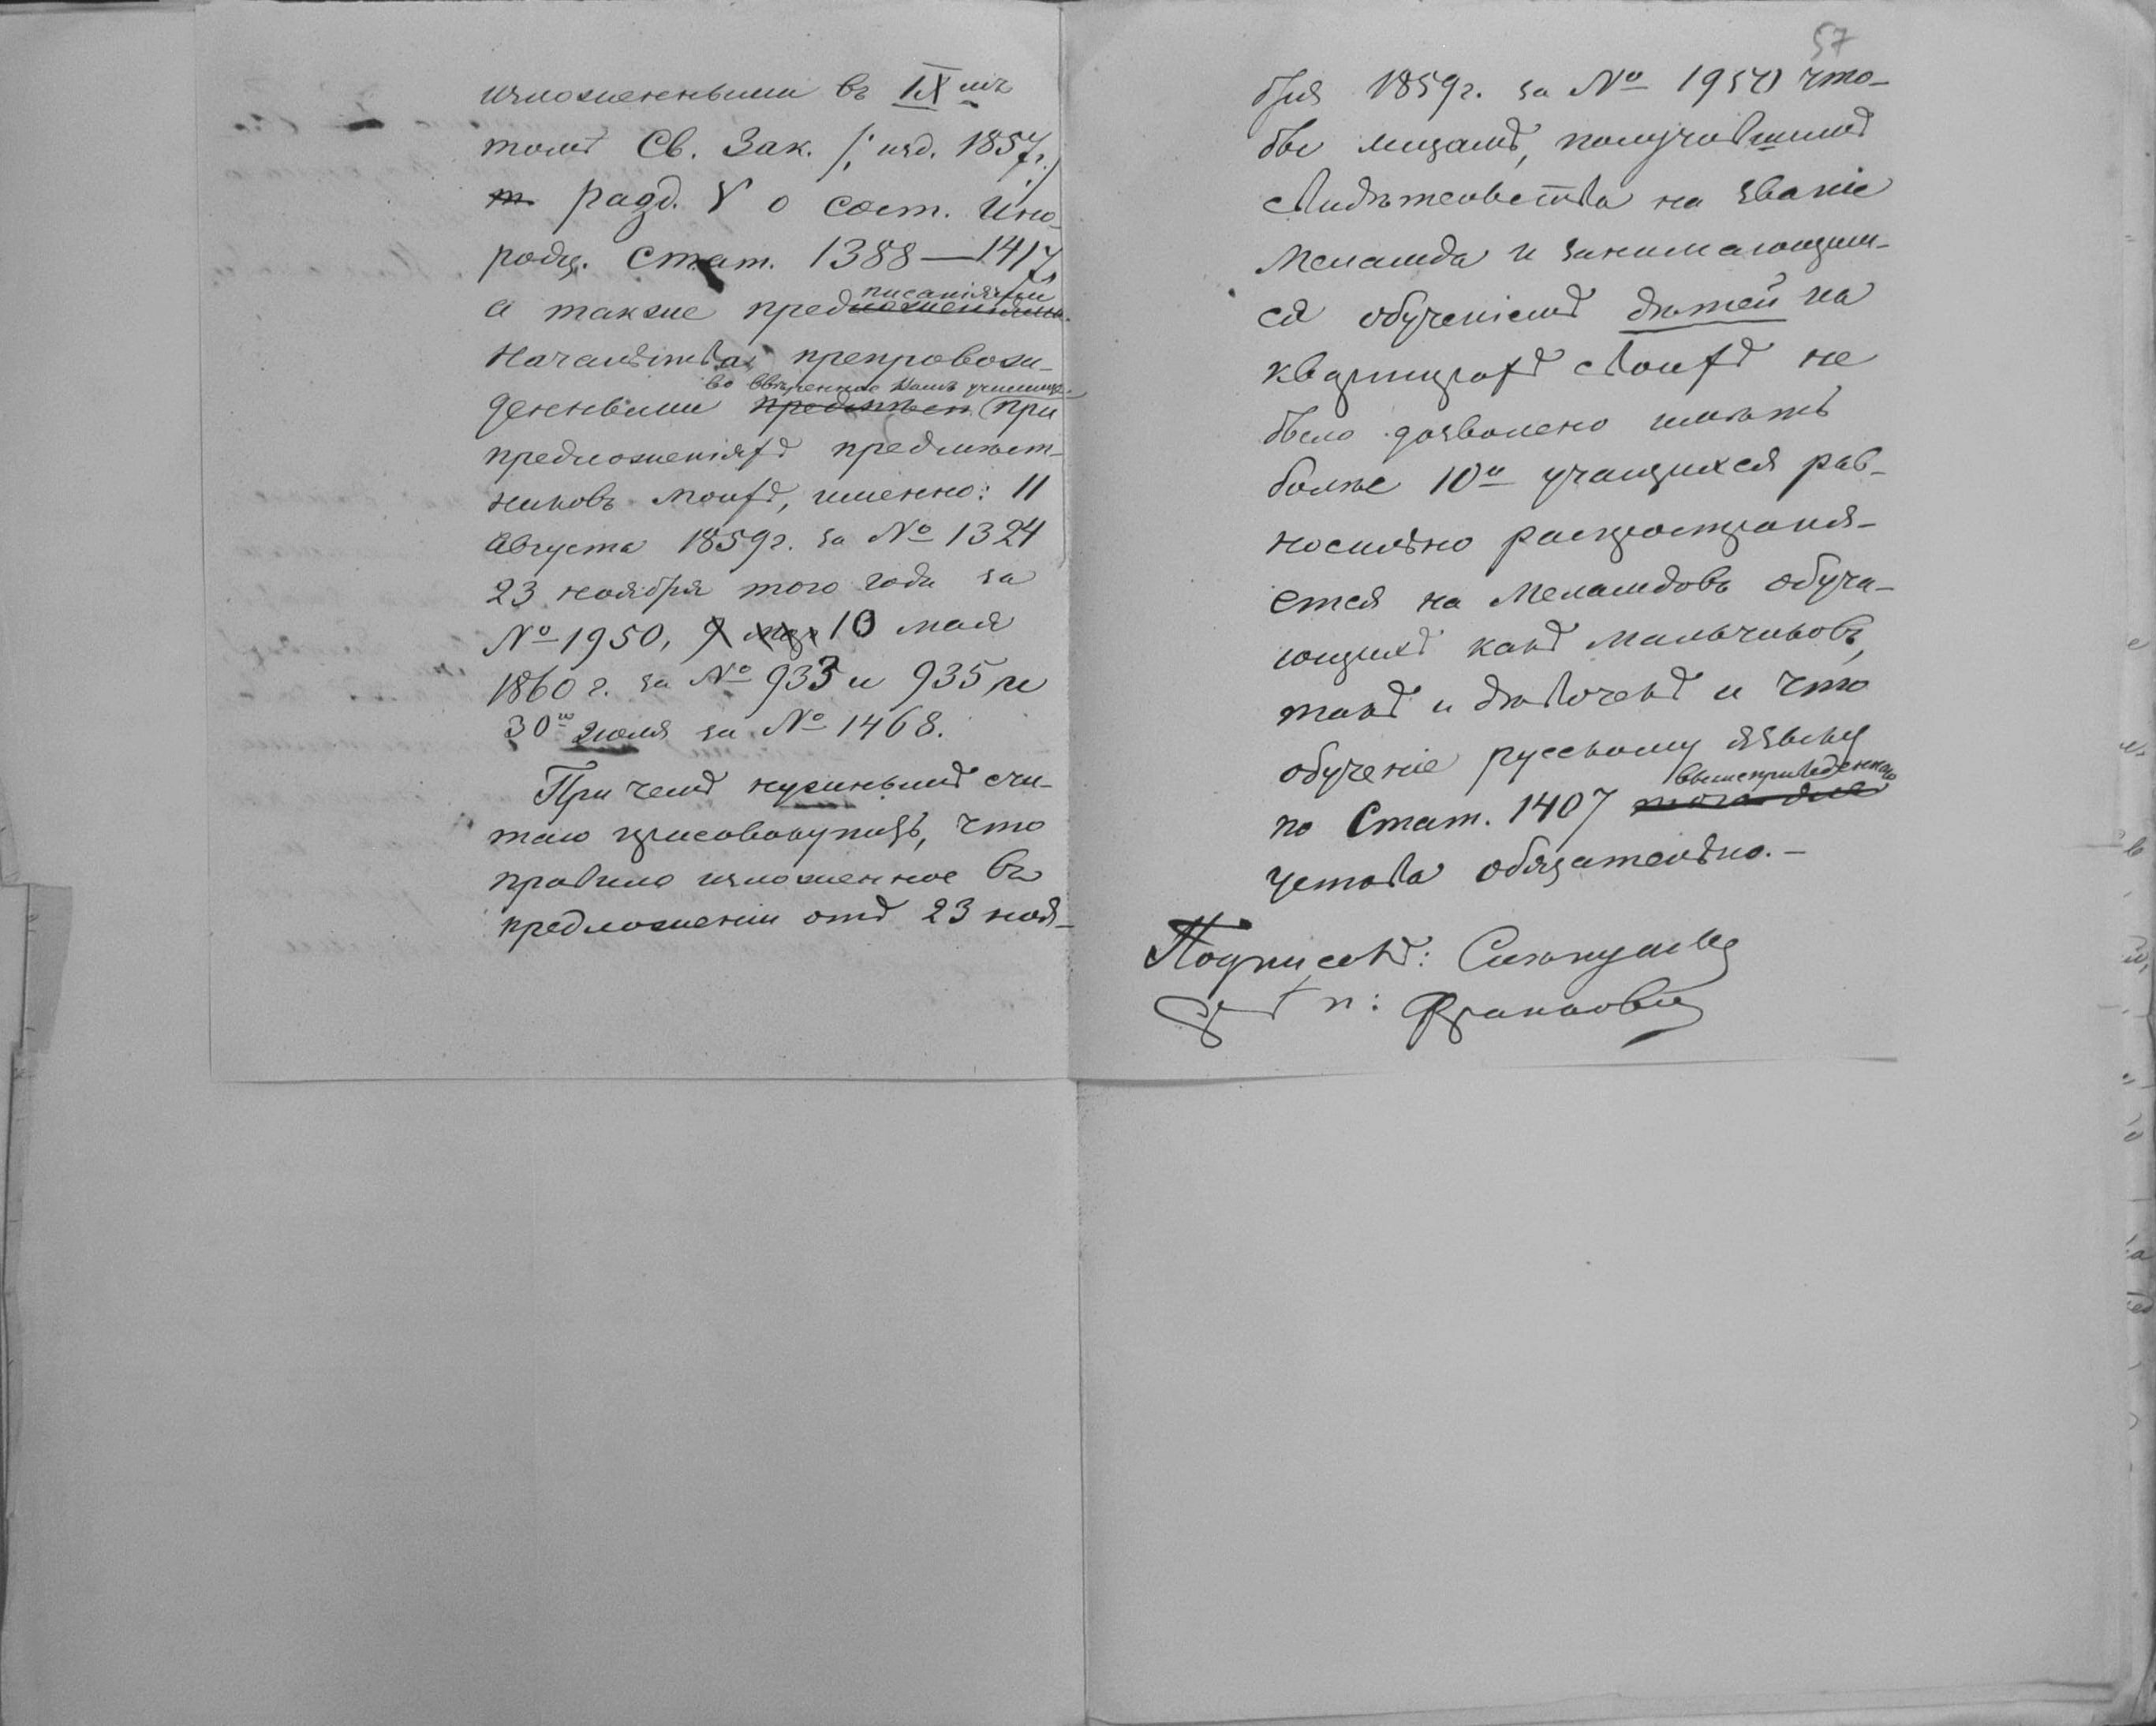 изложенными въ IX мъ
томѣ Св. Зак. /: изд. 1857 г.)
разд. V о сост. Ино-
родц. Стат. 1388—1417,
а также предписаніями
Начальства, препровож-
денными во ввѣренное Вамъ училище (при
предложеніяхъ предмѣст-
никовъ моихъ, именно: 11
Августа 1859 г. за № 1324
23 ноября того года за
№ 1950, 10 мая
1860 г. за № 933 и 935, и
30го Іюля за № 1468.
При чемъ нужнымъ счи-
таю присовокупить, что
правило изложенное въ
предложеніи отъ 23 нояб-
57
бря 1859 г. за № 1950 что-
бы лицамъ, получившимъ
свидѣтельства на званіе
Меламда и занимающим-
ся обученіемъ дѣтей на
квартирахъ своихъ не
было дозволено имѣть
болѣе 10и учащихся рав-
носильно распространя-
ется на Меламдовъ обуча-
ющихъ какъ мальчиковъ,
такъ и дѣвочекъ и что
обученіе русскому языку
по Стат. 1407 вышеприведеннаго
устава обязательно.—
Подписалъ: